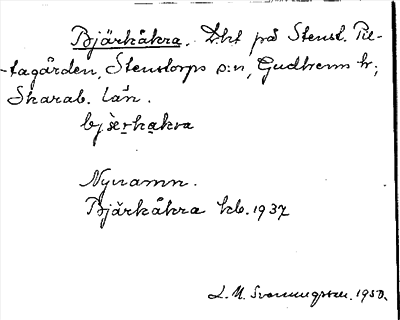 Bjärkåkra. D:o på Stenst. Pil-
-tagården, Stenstorps s:n, Gudhems hr;
Skarab. län.
bjšerkakra
Nynamn.
Bjärkåkra kb. 1937
L. M. Svenungsson. 1950.